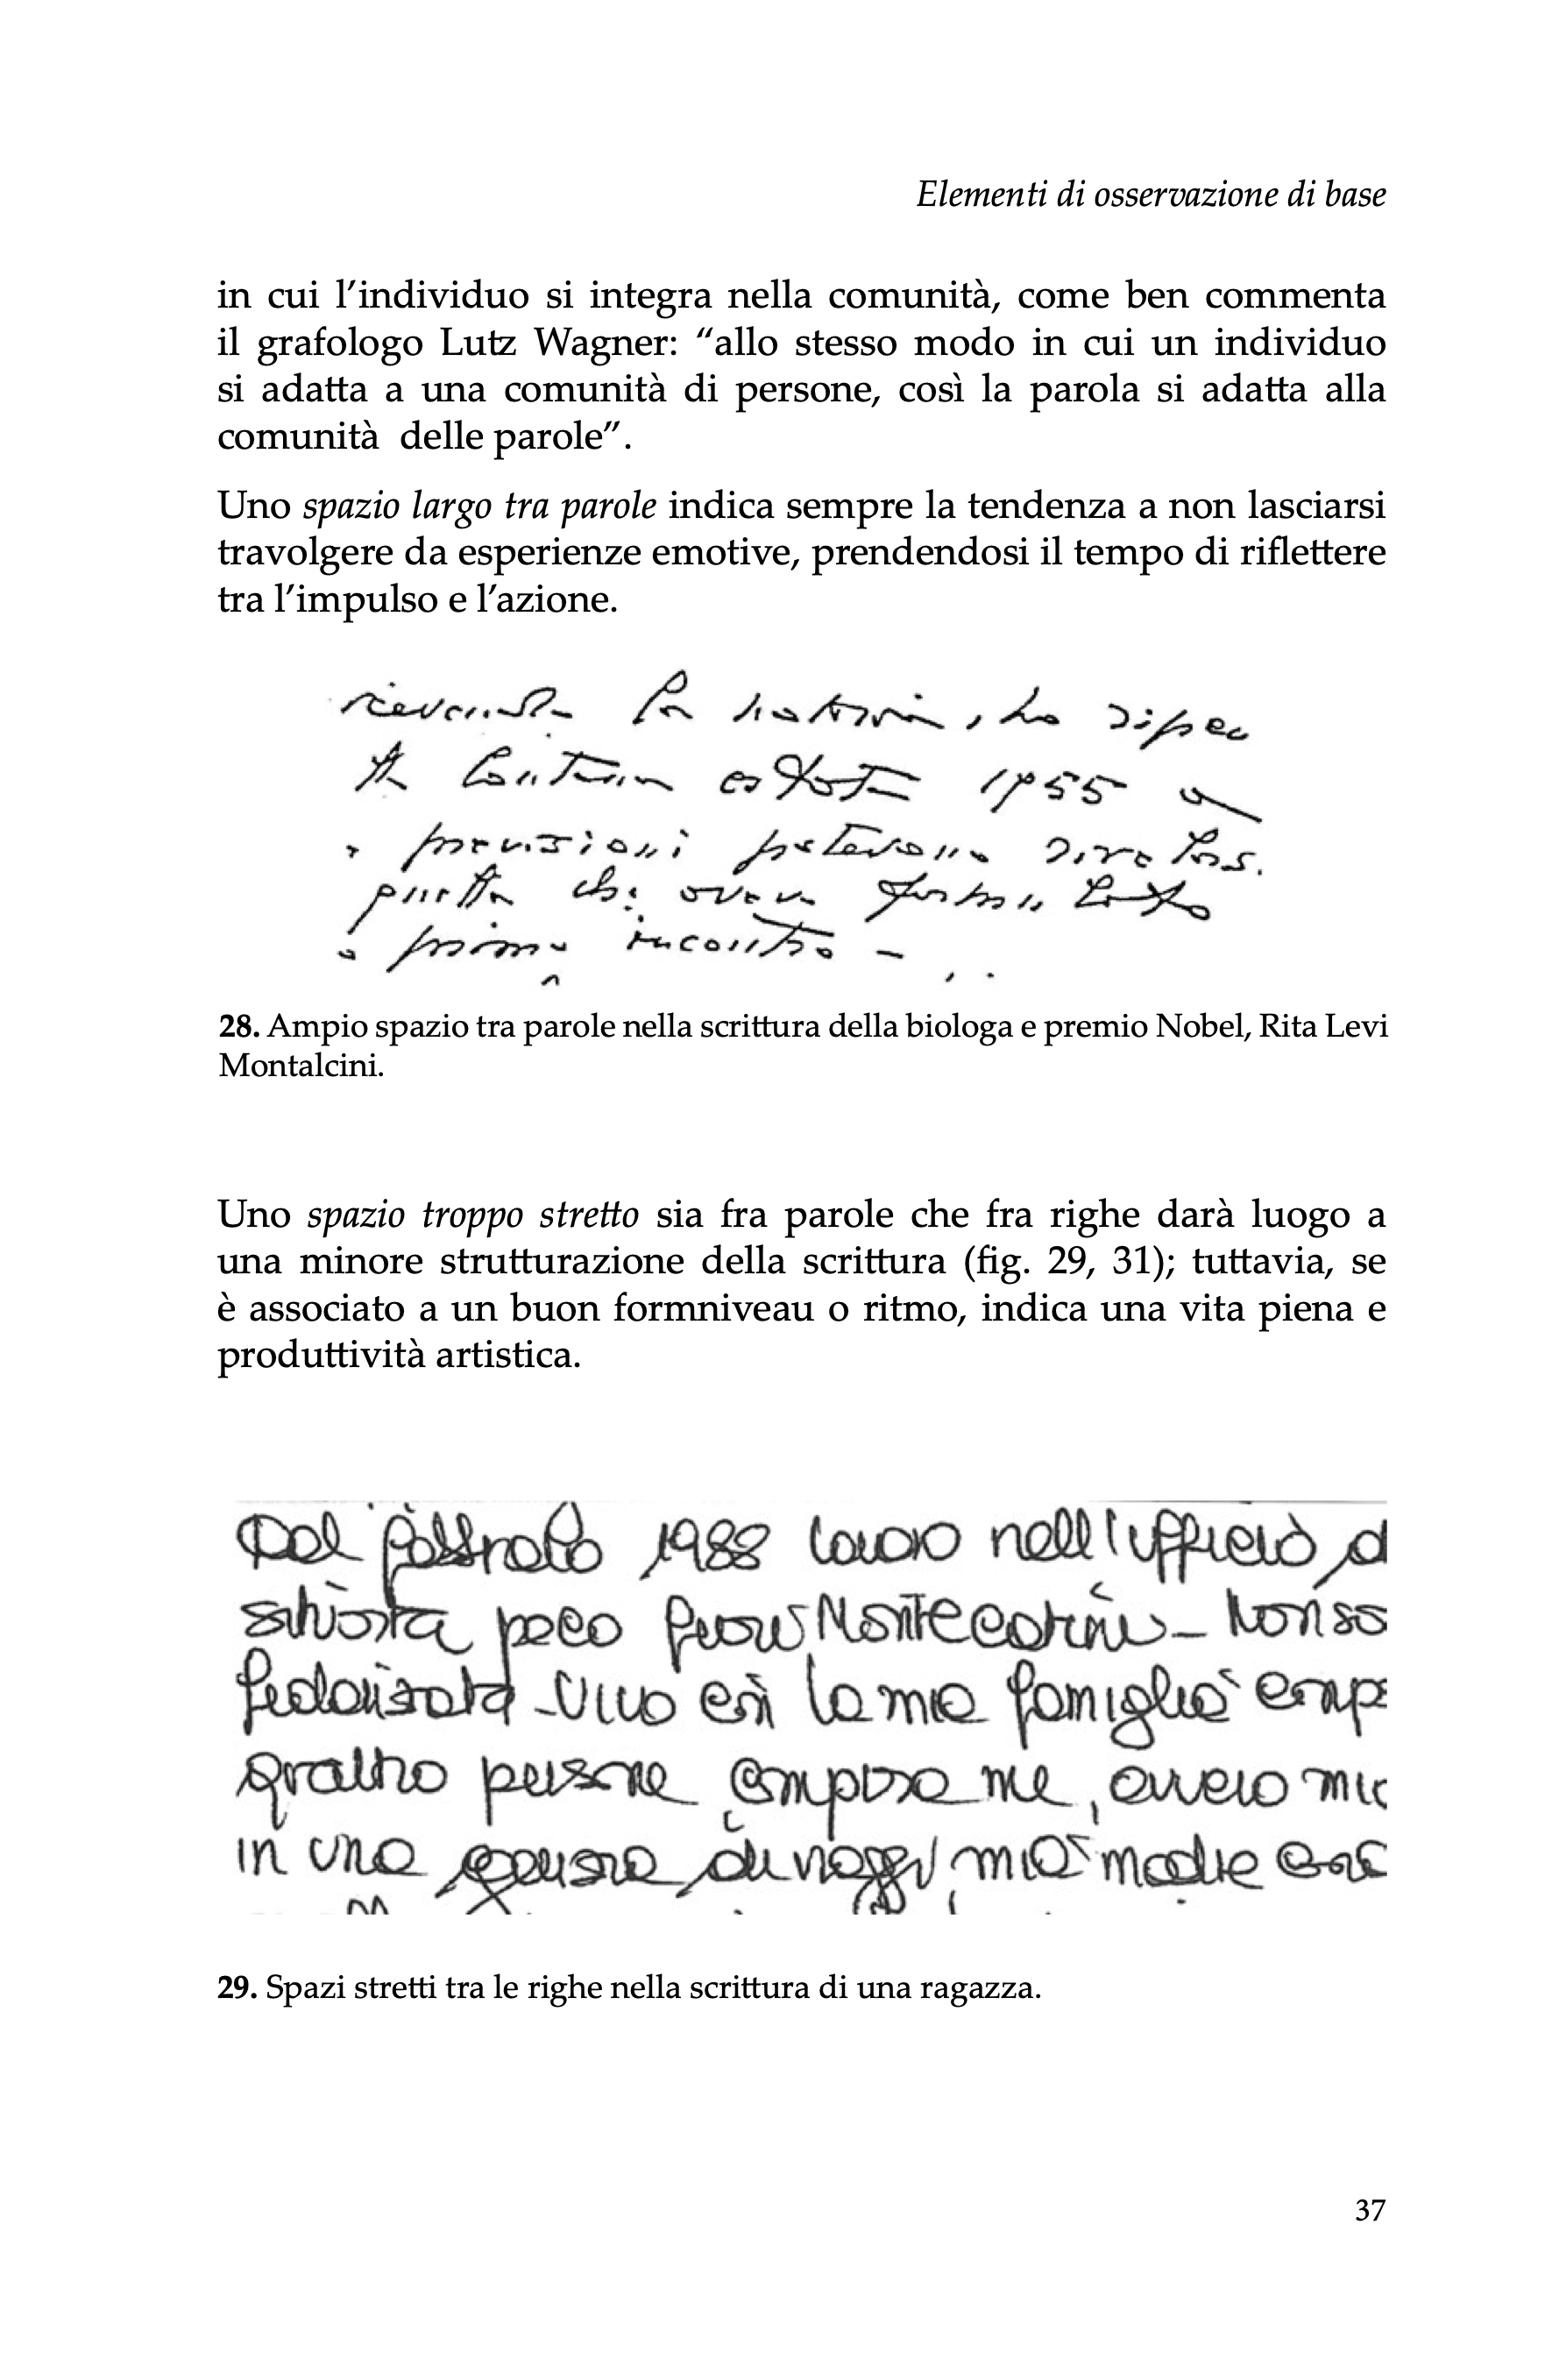 Elementi di osservazione di base
in cui l’individuo si integra nella comunità, come ben commenta
il grafologo Lutz Wagner: “allo stesso modo in cui un individuo
si adatta a una comunità di persone, così la parola si adatta alla
comunità delle parole”.
Uno spazio largo tra parole indica sempre la tendenza a non lasciarsi
travolgere da esperienze emotive, prendendosi il tempo di riflettere
tra l’impulso e l’azione.
la
estate 1955
previsioni potevano
quella che aveva
primo incontro -
28. Ampio spazio tra parole nella scrittura della biologa e premio Nobel, Rita Levi
Montalcini.
Uno spazio troppo stretto sia fra parole che fra righe darà luogo a
una minore strutturazione della scrittura (fig. 29, 31); tuttavia, se
è associato a un buon formniveau o ritmo, indica una vita piena e
produttività artistica.
Dal febbraio 1988 lavoro nell'ufficio d
poco fuori Montecatini - Non so
fidanzata - Vivo con la mia famiglia comp
quattro persone compresa me, ovvero mio
in una mia madre
29. Spazi stretti tra le righe nella scrittura di una ragazza.
37